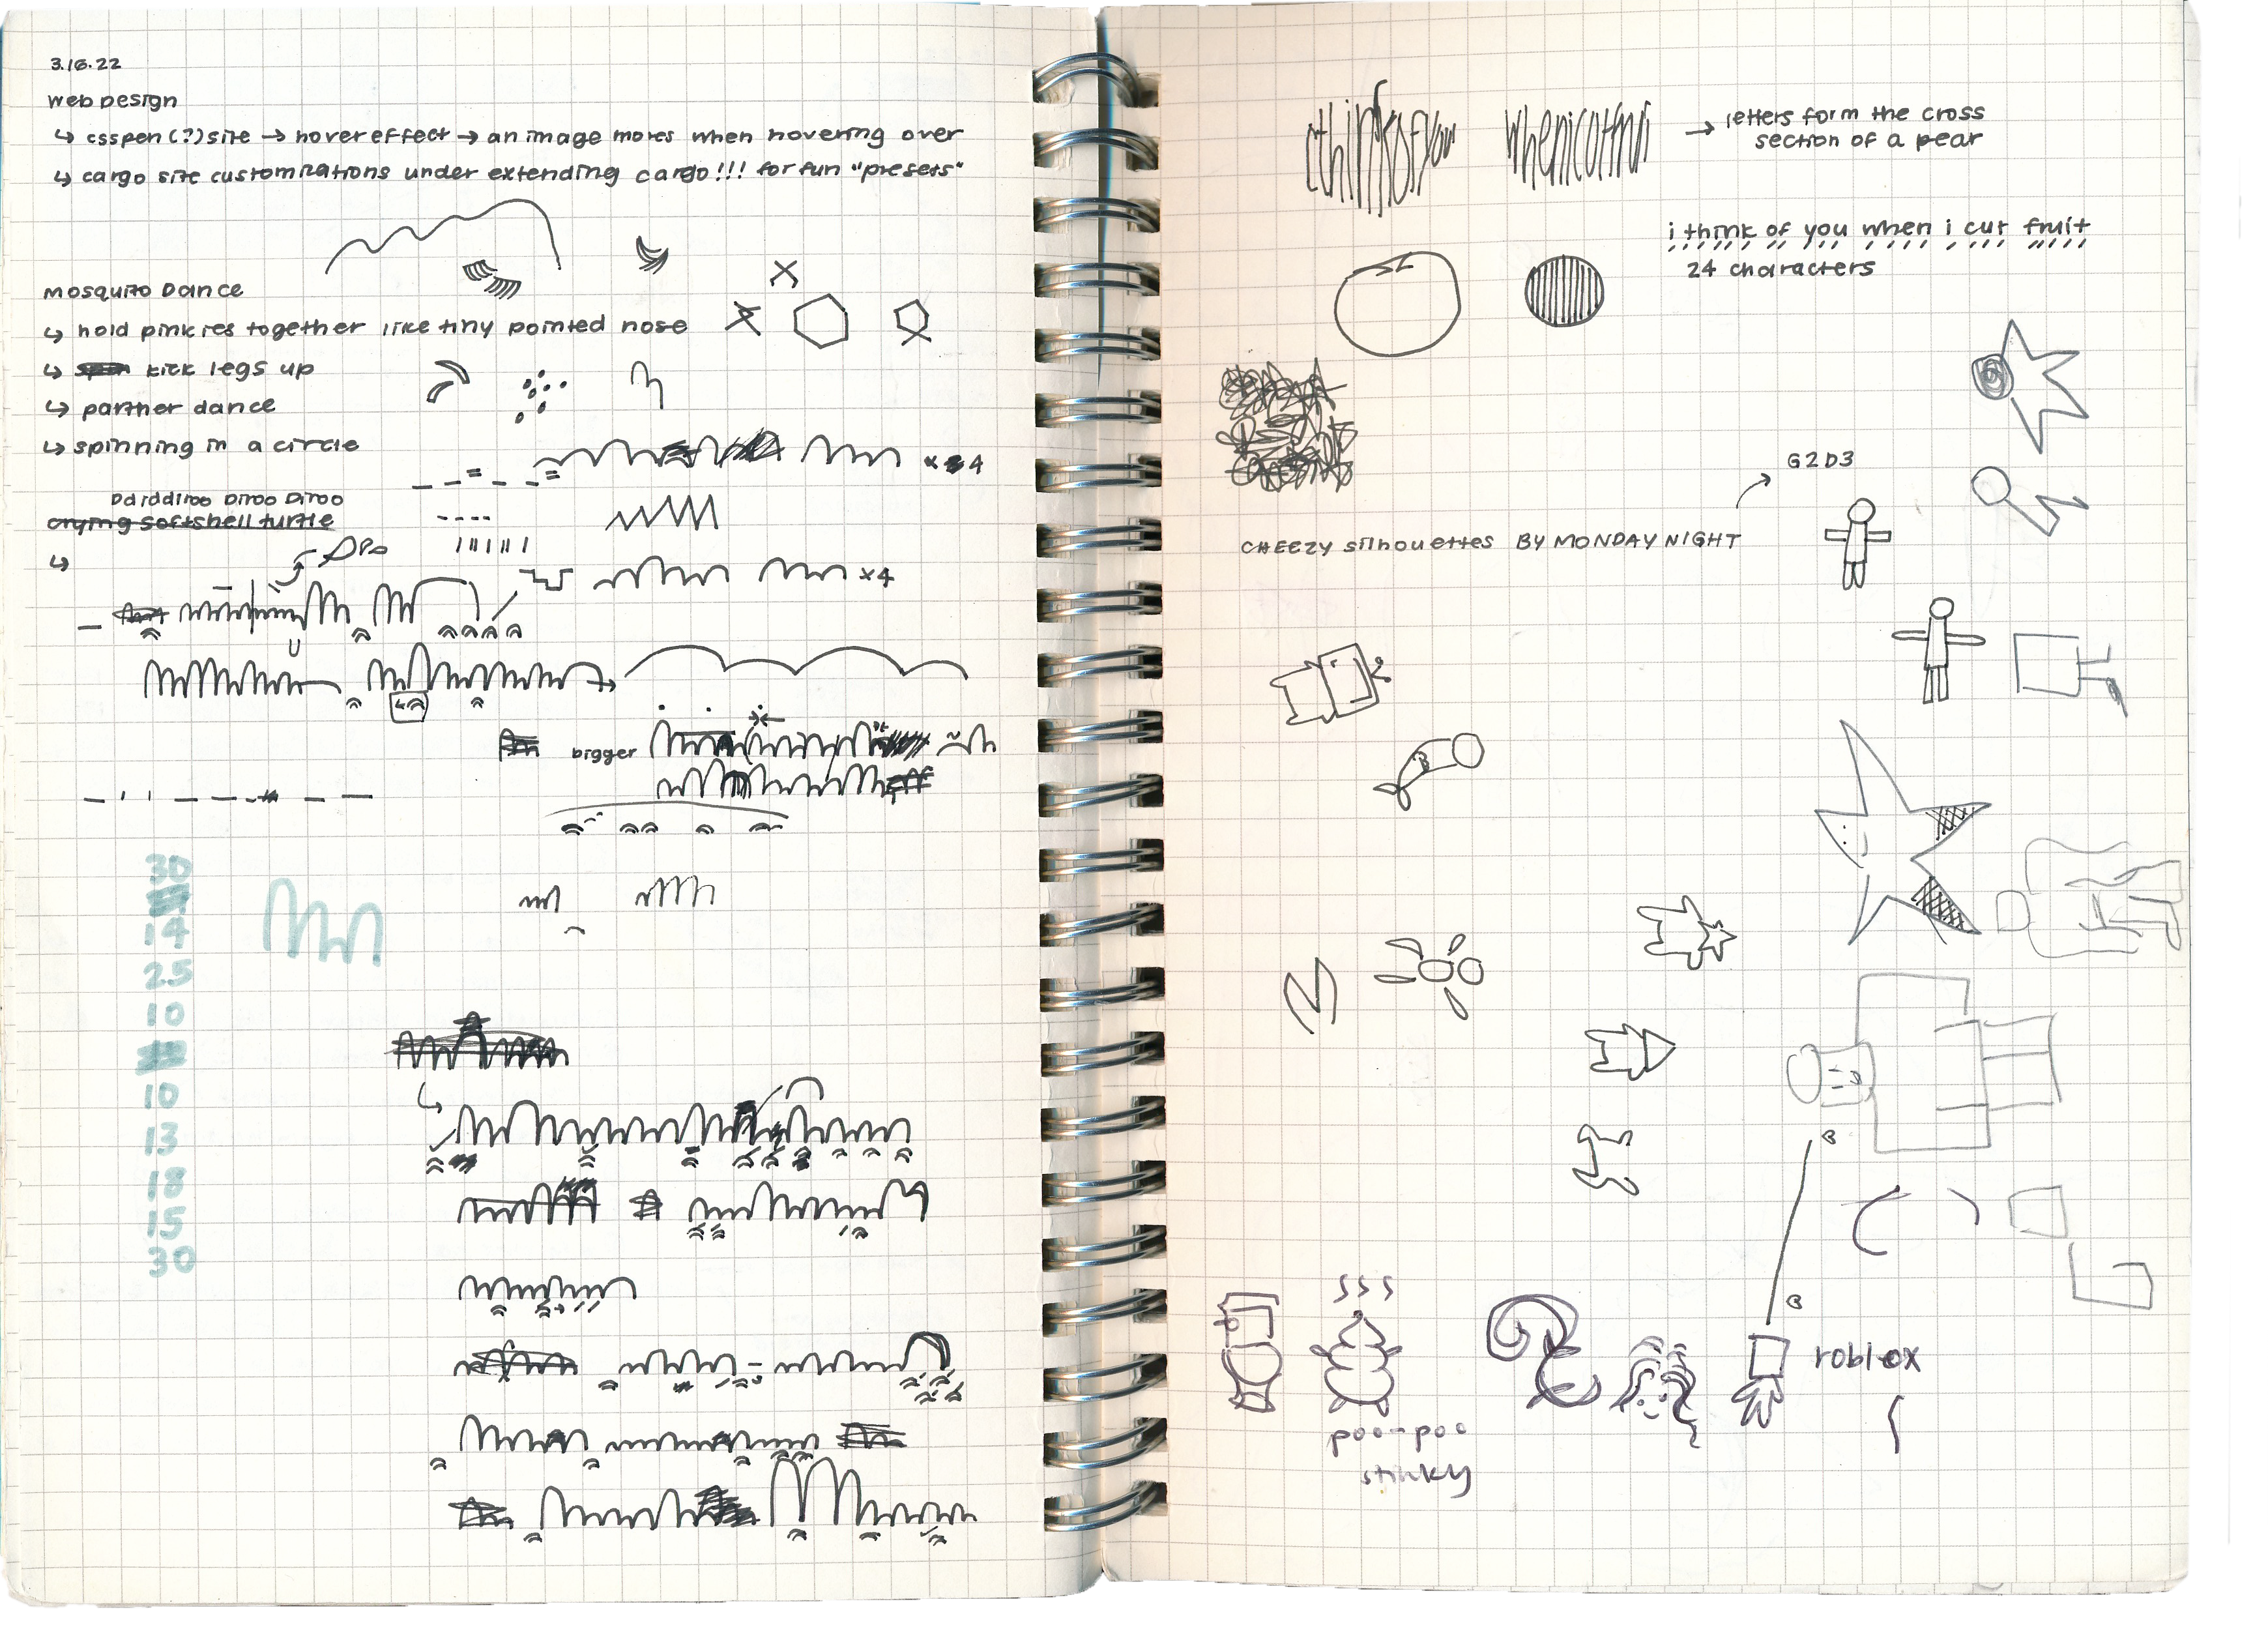 3.16.22
web design
↳ csspen (?) site → hover effect → an image moves when hovering over
↳ cargo site customizations under extending cargo!!! for fun "presets"
mosquito dance
↳ hold pinkies together like tiny pointed nose
↳ kick legs up
↳ partner dance
↳ spinning in a circle
x 4
crying softshell turtle
↳
x4
bigger
30
14
25
10
10
13
18
15
30
ithinkofyou whenicutfrui → letters form the cross
section of a pear
i think of you when i cut fruit
24 characters
G2D3
CHEEZY silhouettes BY MONDAY NIGHT
roblox
poo-poo
stinky